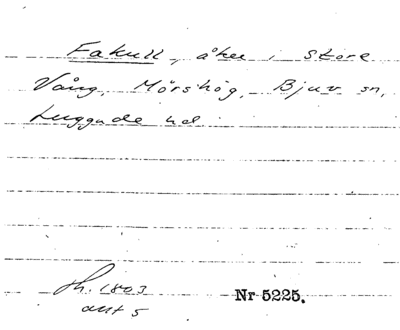 Fakull, åker i Store
Vång, Mörshög, Bjuv sn,
Luggude hd
h. 1803
akt 5
Nr 5225.